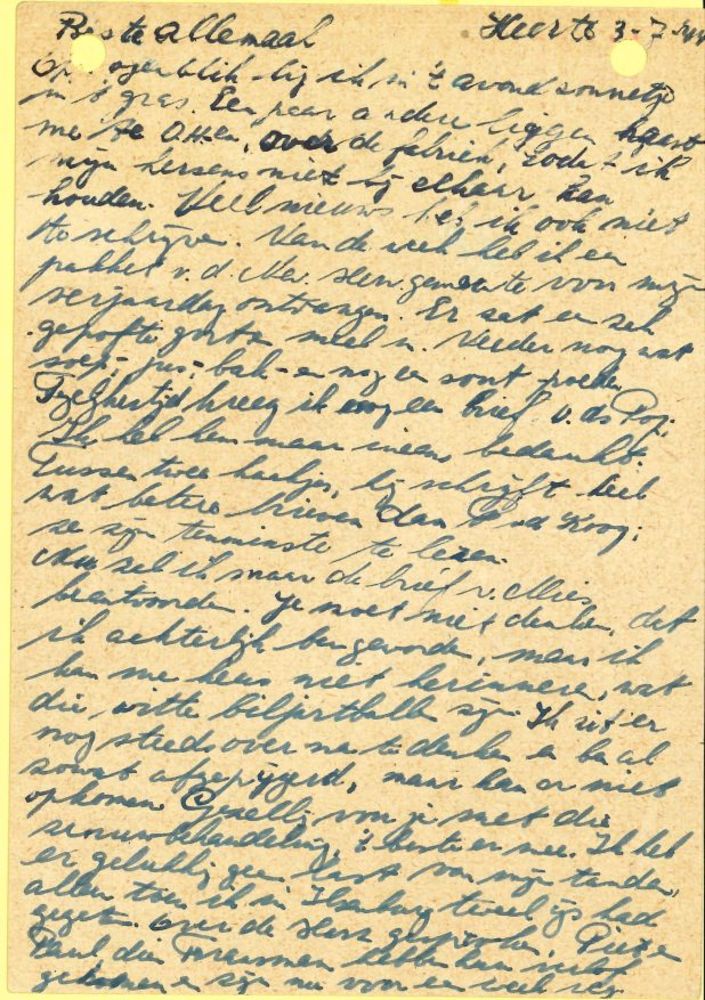 Beste allemaal Heerte 3-7-44
Op ogenblik lig ik in 't avondzonnetje
in 't gras. Een paar andere liggen naast
me te over de fabriek, zodat ik
mijn hersens niet bij elkaar kan
houden. Veel nieuws heb ik ook niet
te schrijven. Van de week heb ik een
pakket v. d. Ned. Herv. gemeente voor mijn
verjaardag ontvangen. Er zat een zak
gepofte gorte meel in. Verder nog wat
soep-, jus-, bak- en nog een soort poeder.
Tegelijkertijd kreeg ik nog een brief v. ds
Ik heb hem maar ineens bedankt.
Tussen twee haakjes, hij schrijft heel
wat betere brieven dan v.d. Kooy;
ze zijn tenminste te lezen.
Nu zal ik maar de brief v. Mies
beantwoorden. Je moet niet denken, dat
ik achterlijk ben geworden, maar ik
kan me heus niet herinneren, wat
die witte biljartballen zijn. Ik zit er
nog steeds over na te denken en ben al
zowat afgepijgerd, maar kan er niet
opkomen. Gezellig voor je met die
zenuwbehandeling, 't beste er mee. Ik heb
er gelukkig geen last van mijn tanden,
alleen toen ik in Ilsenburg teveel ijs had
gegeten. Over de Harz gesproken, Piet en
Paul, die Fransman hebben hun verlof
gekomen en zijn nu voor een week weg